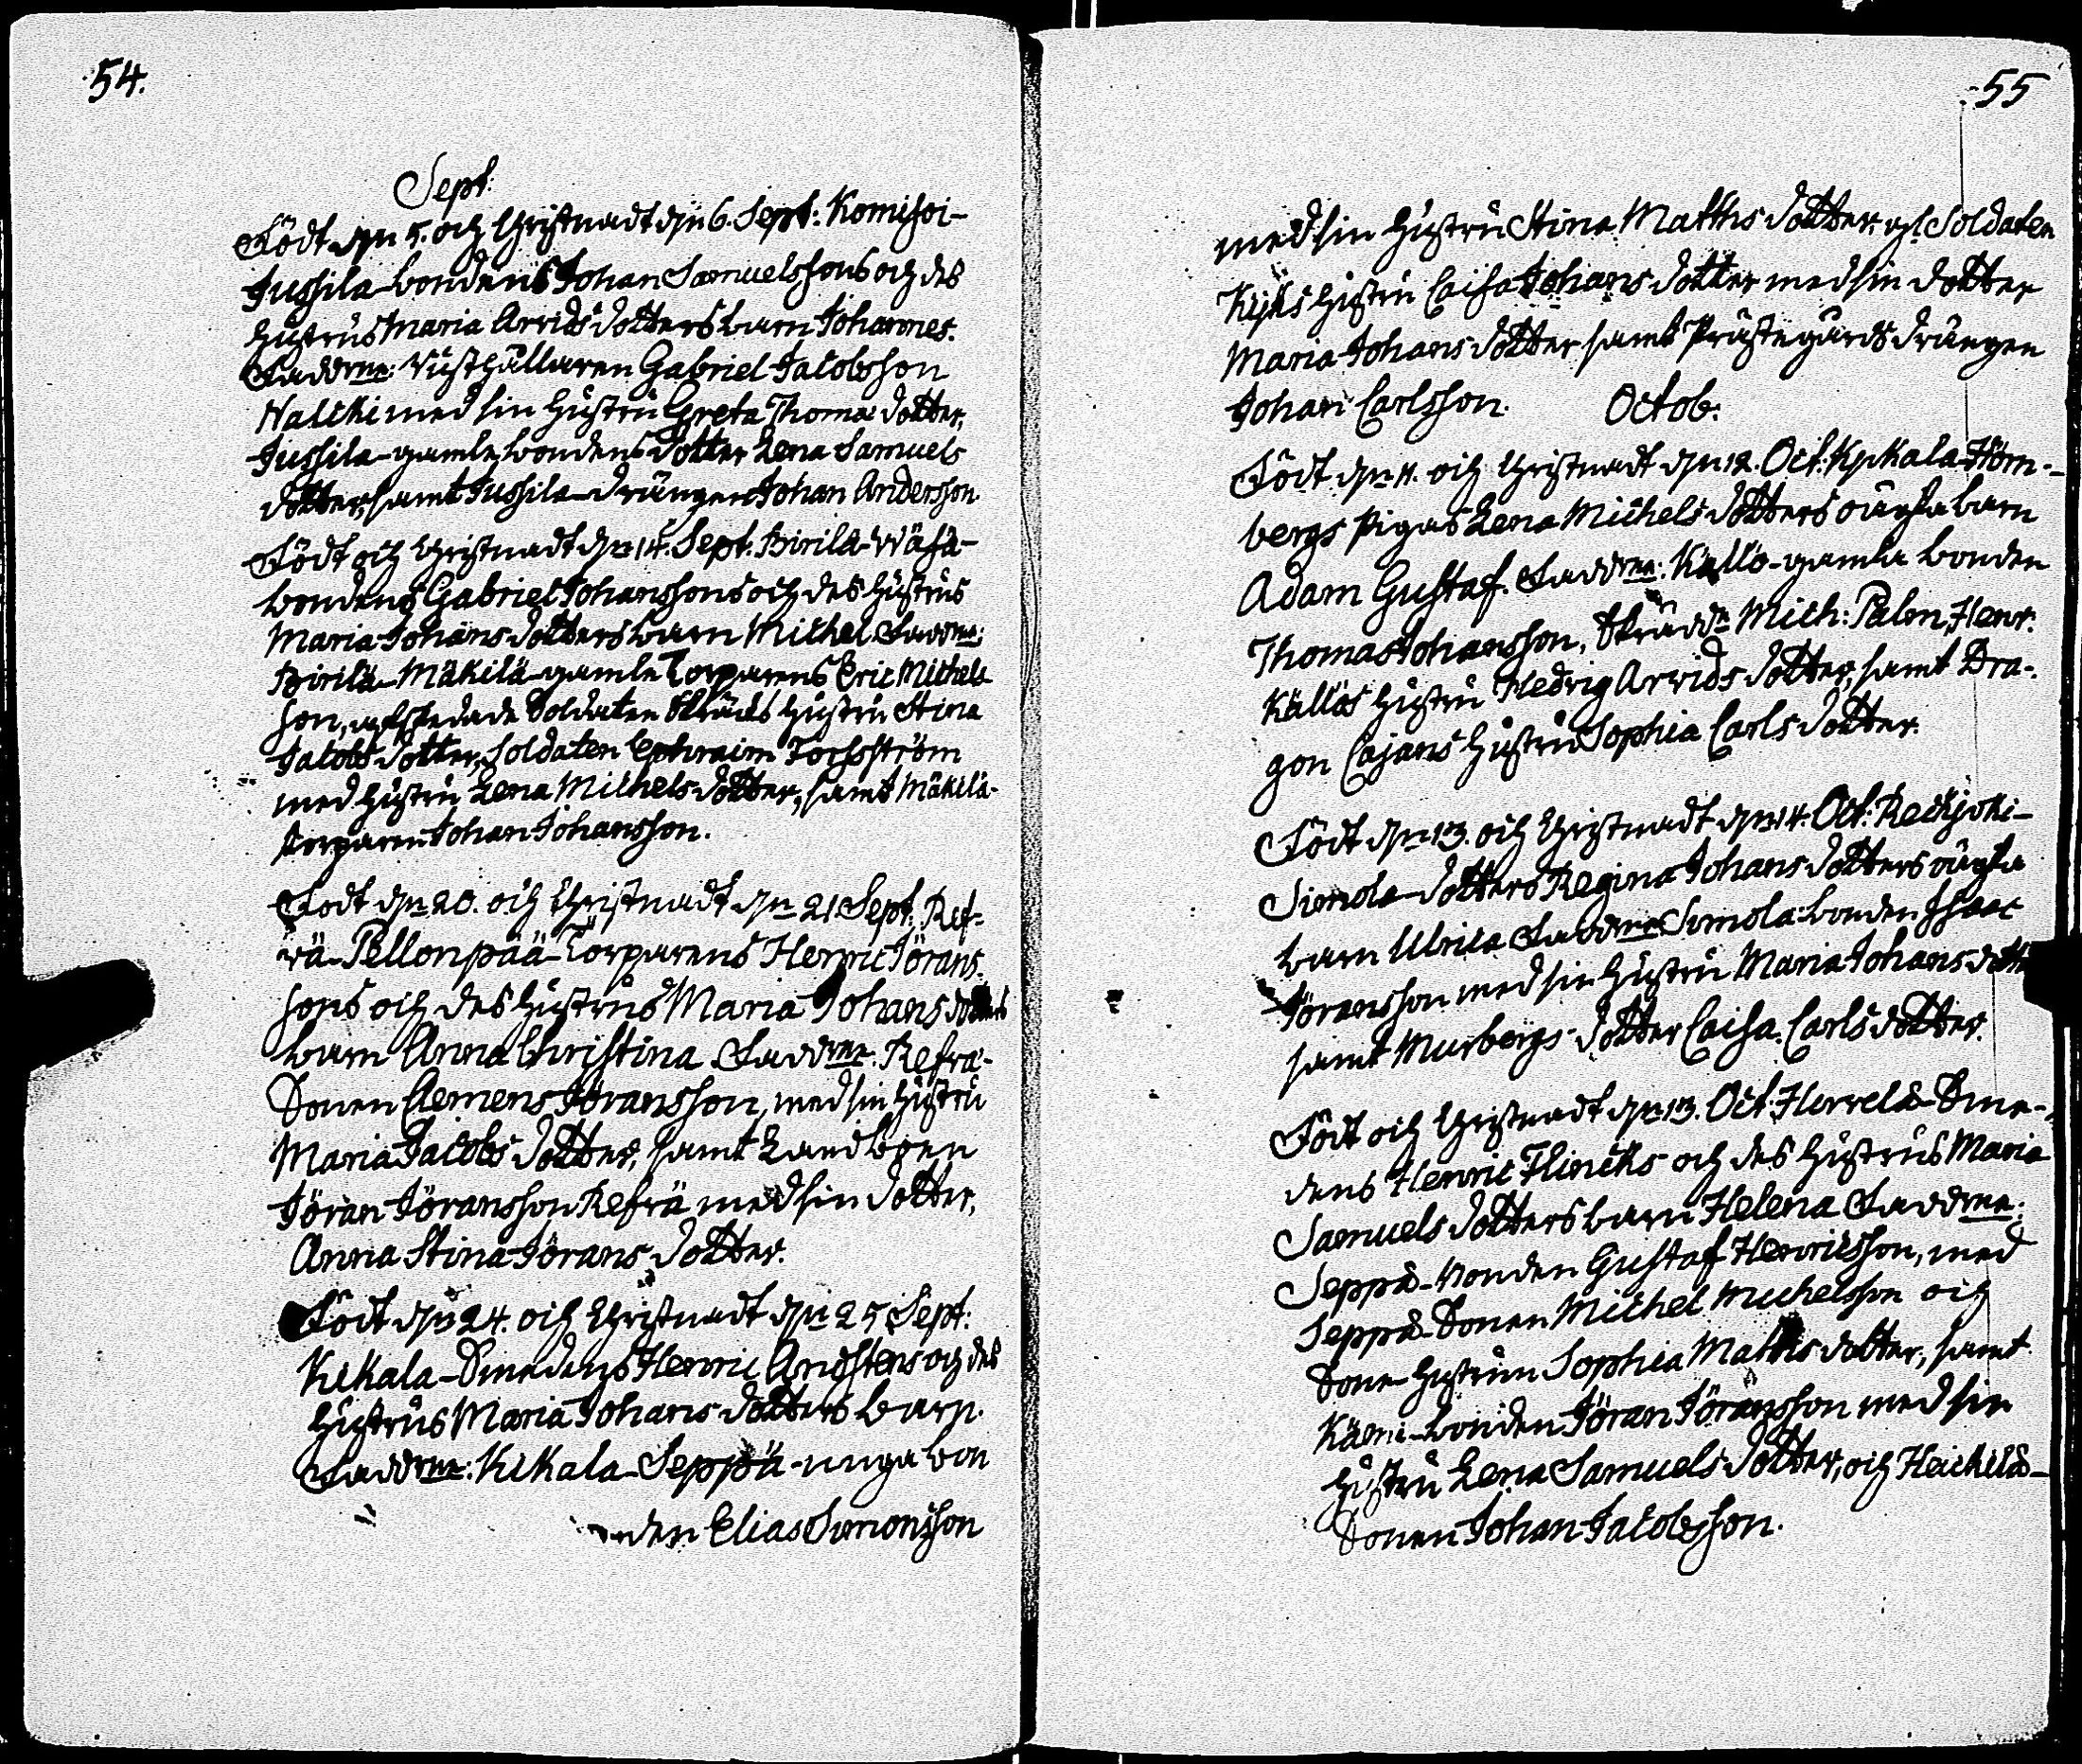 54.
Sept:
Född dn 5. och Christnadt dn 6. Sept: Komisoi-
Jussila-bondens Johan Samuelssons och des
hustrus Maria Arvids dotters barn Johannes.
Faddrne: Rusthållaren Gabriel Jacobsson
Nalcki med sin hustru Greta Thomæ dotter,
Jussila-gamle bondens dotter Lena Samuels
dotter, samt Jussila-drängen Johan Andersson.
Född och Christnadt dn 14. Sept. Birilä-Wähä-
bondens Gabriel Johanssons och des hustrus
Maria Johans dotters barn Michel Faddrne:
Birilä-Mäkilä-gamle Torparens Eric Michels
son, afskedade Soldaten hustru Stina
Jacobs dotter, Soldaten Ephraim Forsström
med hustru Lena Michels dotter, samt Mäkilä-
torparen Johan Johansson.
Född dn 20. och Christnadt dn 21 Sept. Ref-
rä-Pellonpää-Torparens Henric Jörans
sons och des hustrus Maria Johans dotters
barn Anna Christina Faddrne. Refrä-
Sonen Clemens Jöransson, med sin hustru
Maria Jacobs dotter, samt Landboen
Jöran Jöransson Refrä med sin dotter,
Anna Stina Jörans dotter.
Född dn 24. och Christnadt dn 25 Sept.
Kikala-Smedens Henric Andstens och des
hustrus Maria Johans dotters barn.
Faddrne: Kikala-Seppä-unga bon
den Elias Simonsson
55
med sin hustru Stina Matths dotter, Soldaten
Kijks hustru Caisa Johans dotter med sin dotter
Maria Johans dotter samt Prästegårds drängen
Johan Carlsson. Octob:
Född dn 11. och Christnadt dn 12. Oct: Kykala-Hörn-
bergs Pigas Lena Michels dotters oägta barn
Adam Gustaf. Faddrne: Källo-gamla bonden
Thomas Johansson, Skrädd. Mich: Palm, Henr:
Källos hustru Hedvig Arvids dotter, samt Dra-
gon Cajans hustru Sophia Carls dotter.
Född dn 13. och Christnadt dn 14. Oct: Reckijoki-
Simola-dotters Regina Johans dotters oägta
barn Ulrica Faddrne Simola-bonden Isaac
Jöransson med sin hustru Maria Johans dotter
samt Murbergs-dotter Caisa Carls dotter.
Född och Christnadt dn 13. Oct. Horrelä-Sme-
dens Henric Flincks och des hustrus Maria
Samuels dotters barn Helena Faddrne:
Seppä-bonden Gustaf Henricsson, med
Seppä-Sonen Michel Michelsson och
Sone hustrun Sophia Matths dotter, samt
bonden Jöran Jöransson med sin
hustru Lena Samuels dotter, och Heickilä-
Sonen Johan Jacobsson.